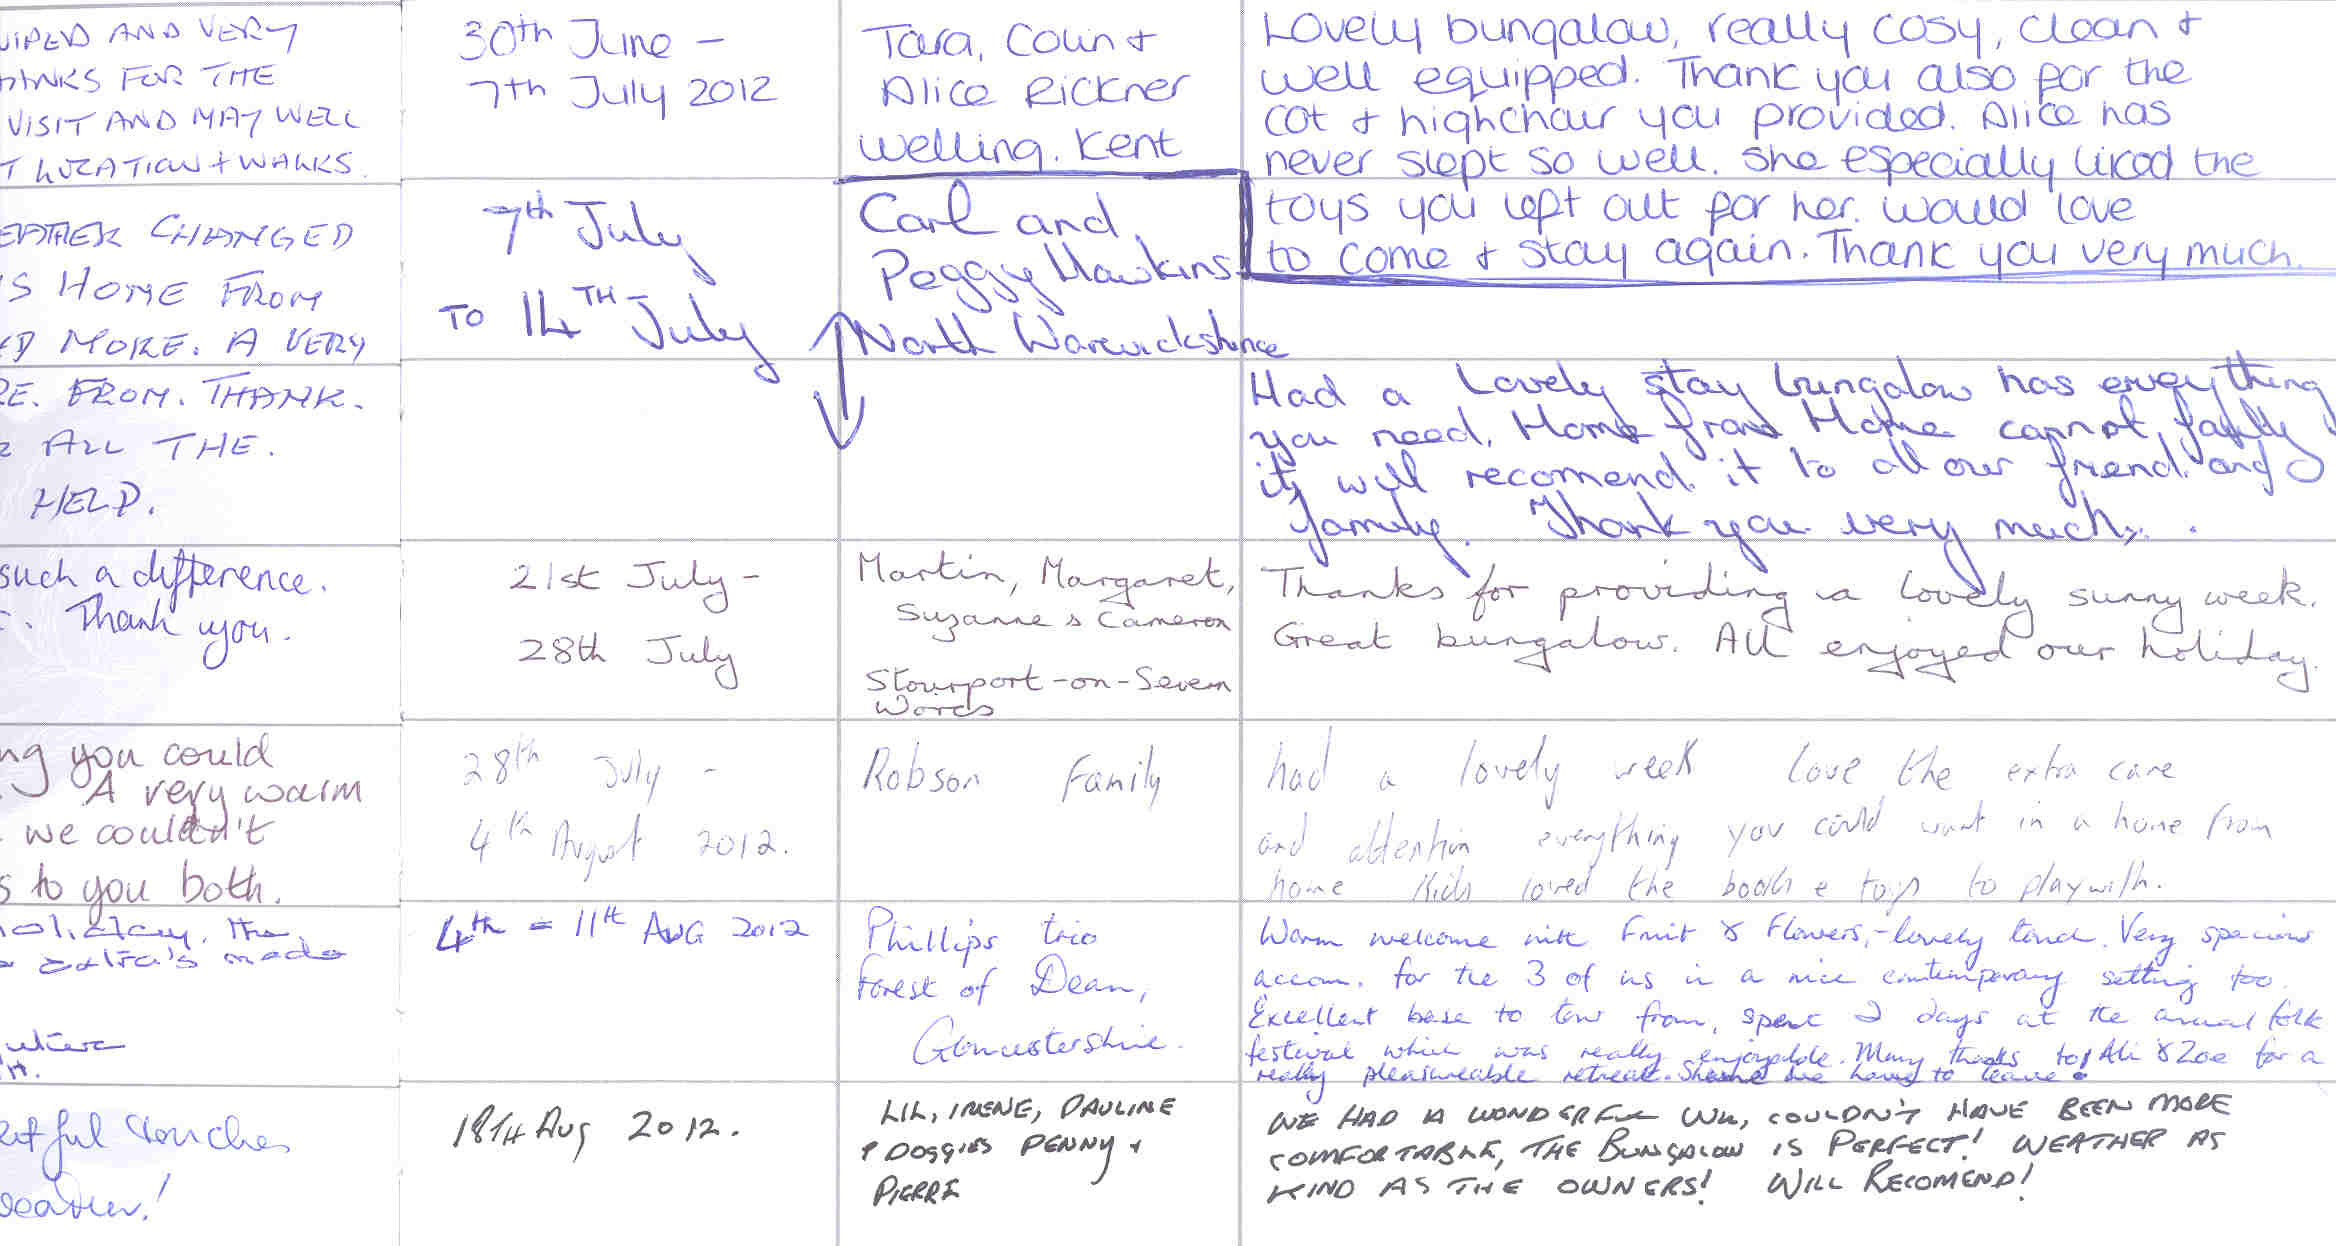 UIPED AND VERY
ANKS FOR THE
VISIT AND MAY WELL
T LOCATION + WALKS.
EATHER CHANGED
S HOME FROM
ED MORE. A VERY
RE. FROM. THANK.
R ALL THE.
HELP.
such a difference.
. Thank you.
ng you could
. A very warm
we couldn't
s to you both.
holiday, the
extra's made
tful touches
30th June -
7th July 2012
Tara, Colin +
Alice Rickner
Welling. Kent
Lovely bungalow, really cosy, clean +
well equipped. Thank you also for the
cot + highchair you provided. Alice has
never slept so well. She especially liked the
toys you left out for her. Would love
to come + stay again. Thank you very much.
7th July
TO 14TH July
Carl and
Peggy Hawkins
North Warwickshire
Had a Lovely stay bungalow has everything
you need. Home from Home cannot faulty
it, will recomend it to all our friend and
family. Thank you very much.
21st July -
28th July
Martin, Margaret,
Suzanne & Cameron
Stourport-on-Severn
Worcs
Thanks for providing a lovely sunny week.
Great bungalow. All enjoyed our holiday.
28th July -
4th August 2012.
Robson Family
had a lovely week love the extra care
and attention everything you could want in a home from
home Kids loved the books & toys to play with.
4th = 11th AUG 2012
Phillips trio
Forest of Dean,
Gloucestershire.
Warm welcome with Fruit & Flowers, - lovely touch. Very spacious
accom. for the 3 of us in a nice contemporary setting too.
Excellent base to tour from, spent 2 days at the annual folk
festival which was really enjoyable. Many thanks to Ali & Zoe for a
really pleasureable retreat. Shame we have to leave.
18TH Aug 2012.
LIL, IRENE, PAULINE
+ DOGGIES PENNY +
PIERRE
WE HAD A WONDERFUL WK, COULDN'T HAVE BEEN MORE
COMFORTABLE, THE BUNGALOW IS PERFECT! WEATHER AS
KIND AS THE OWNERS! WILL RECOMEND!